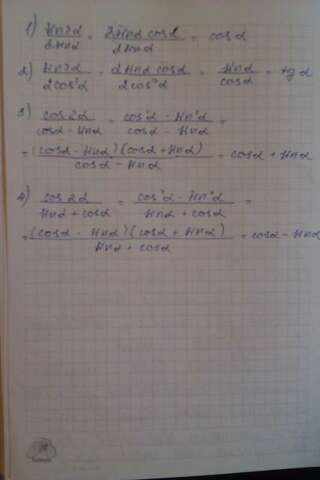 1) sin2α/2sinα = 2sinα cosα/2sinα = cosα
2) sin2α/2cos²α = 2sinα cosα/2cos²α = sinα/cosα = tgα
3) cos2α/cosα - sinα = cos²α - sin²α/cosα - sinα =
= (cosα - sinα)(cosα + sinα)/cosα - sinα = cosα + sinα
4) cos2α/sinα + cosα = cos²α - sin²α/sinα + cosα =
= (cosα - sinα)(cosα + sinα)/sinα + cosα = cosα - sinα